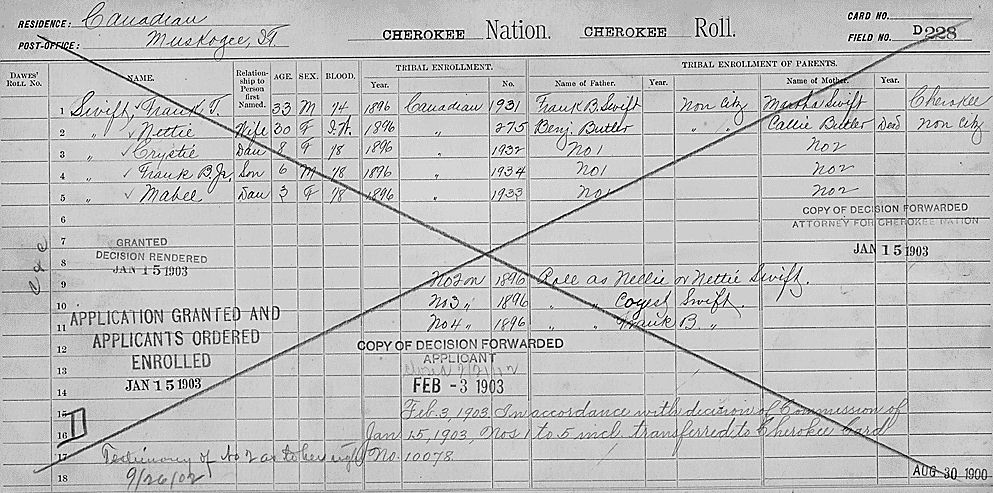 RESIDENCE: Canadian
POST-OFFICE: Muskogee, IT
CHEROKEE Nation. CHEROKEE Roll.
CARD NO.
FIELD NO. D 228
DAWES' ROLL NO. NAME. Relationship to Person first Named. AGE. SEX. BLOOD. TRIBAL ENROLLMENT. Year. No. TRIBAL ENROLLMENT OF PARENTS. Name of Father. Year. Name of Mother. Year.
1 Swift, Frank T. 33 M 1/4 1896 Canadian 1931 Frank B. Swift Non Citz Martha Swift Cherokee
2 " Nettie Wife 30 F I.W. 1896 " 275 Benj. Butler " " Callie Butler Dead Non Citz
3 " Crystie Dau 8 F 1/8 1896 " 1932 No1 No2
4 " Frank B. Jr. Son 6 M 1/8 1896 " 1934 No1 No2
5 " Mabel Dau 3 F 1/8 1896 " 1933 No1 No2
6 COPY OF DECISION FORWARDED
ATTORNEY FOR CHEROKEE NATION
7 GRANTED
JAN 15 1903
8 DECISION RENDERED
JAN 15 1903
9 No2 on 1896 Roll as Nellie or Nettie Swift.
10 No3 " 1896 " " Swift.
11 No4 " 1896 " " Frank B. "
APPLICATION GRANTED AND
APPLICANTS ORDERED
ENROLLED
JAN 15 1903
12 COPY OF DECISION FORWARDED
APPLICANT
13
FEB -3 1903
14 Feb. 3, 1903. In accordance with decision of Commission of
15 D
16 Jan 15, 1903, Nos 1 to 5 incl. transferred to Cherokee Card
17 Testimony of No 2 as to her right No. 10078
18 9/26/02
AUG 30 1900